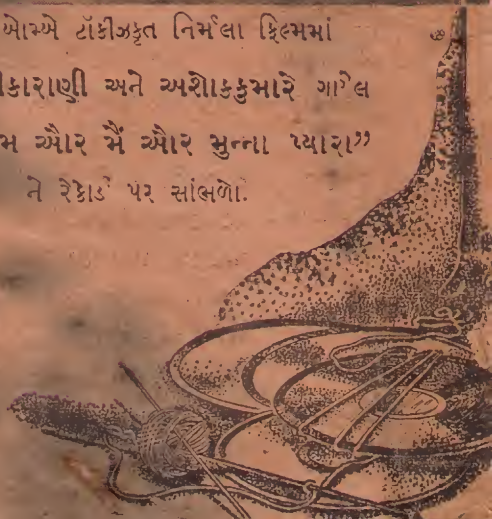 બોમ્બે ટૉકીઝકૃત નિર્મલા ફિલ્મમાં
ીકારાણી અને અશોકકુમારે ગાએલ
મ ઔર મૈં ઔર મુન્ના પ્યારા”
ને રેકોર્ડ પર સાંભળો.